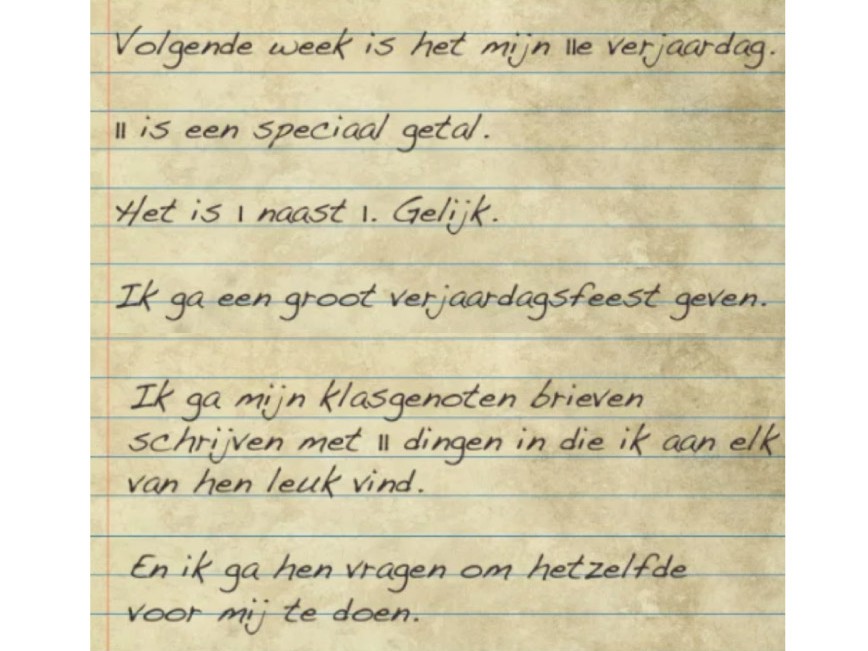 Volgende week is het mijn 11e verjaardag.
11 is een speciaal getal.
Het is 1 naast 1. Gelijk.
Ik ga een groot verjaardagsfeest geven.
Ik ga mijn klasgenoten brieven
schrijven met 11 dingen in die ik aan elk
van hen leuk vind.
En ik ga hen vragen om hetzelfde
voor mij te doen.